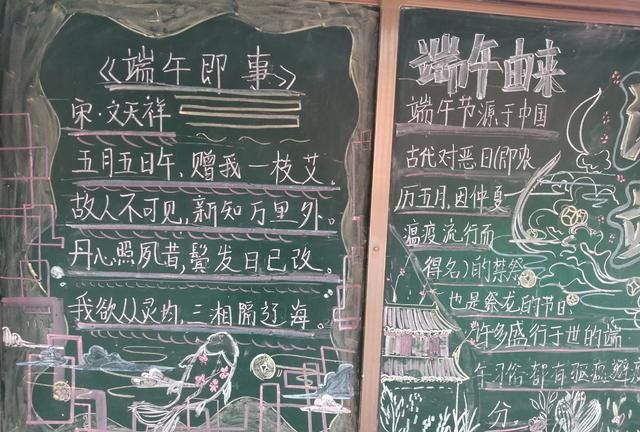 《端午即事》
宋·文天祥
五月五日午，赠我一枝艾。
故人不可见，新知万里外。
丹心照夙昔，鬓发日已改。
我欲从灵均，三湘隔辽海。
端午由来
端午节源于中国
古代对恶日(即农
历五月，因仲夏
瘟疫流行而
得名)的禁祭
也是祭龙的节日，
许多盛行于世的端
午习俗都有驱瘟避
分。